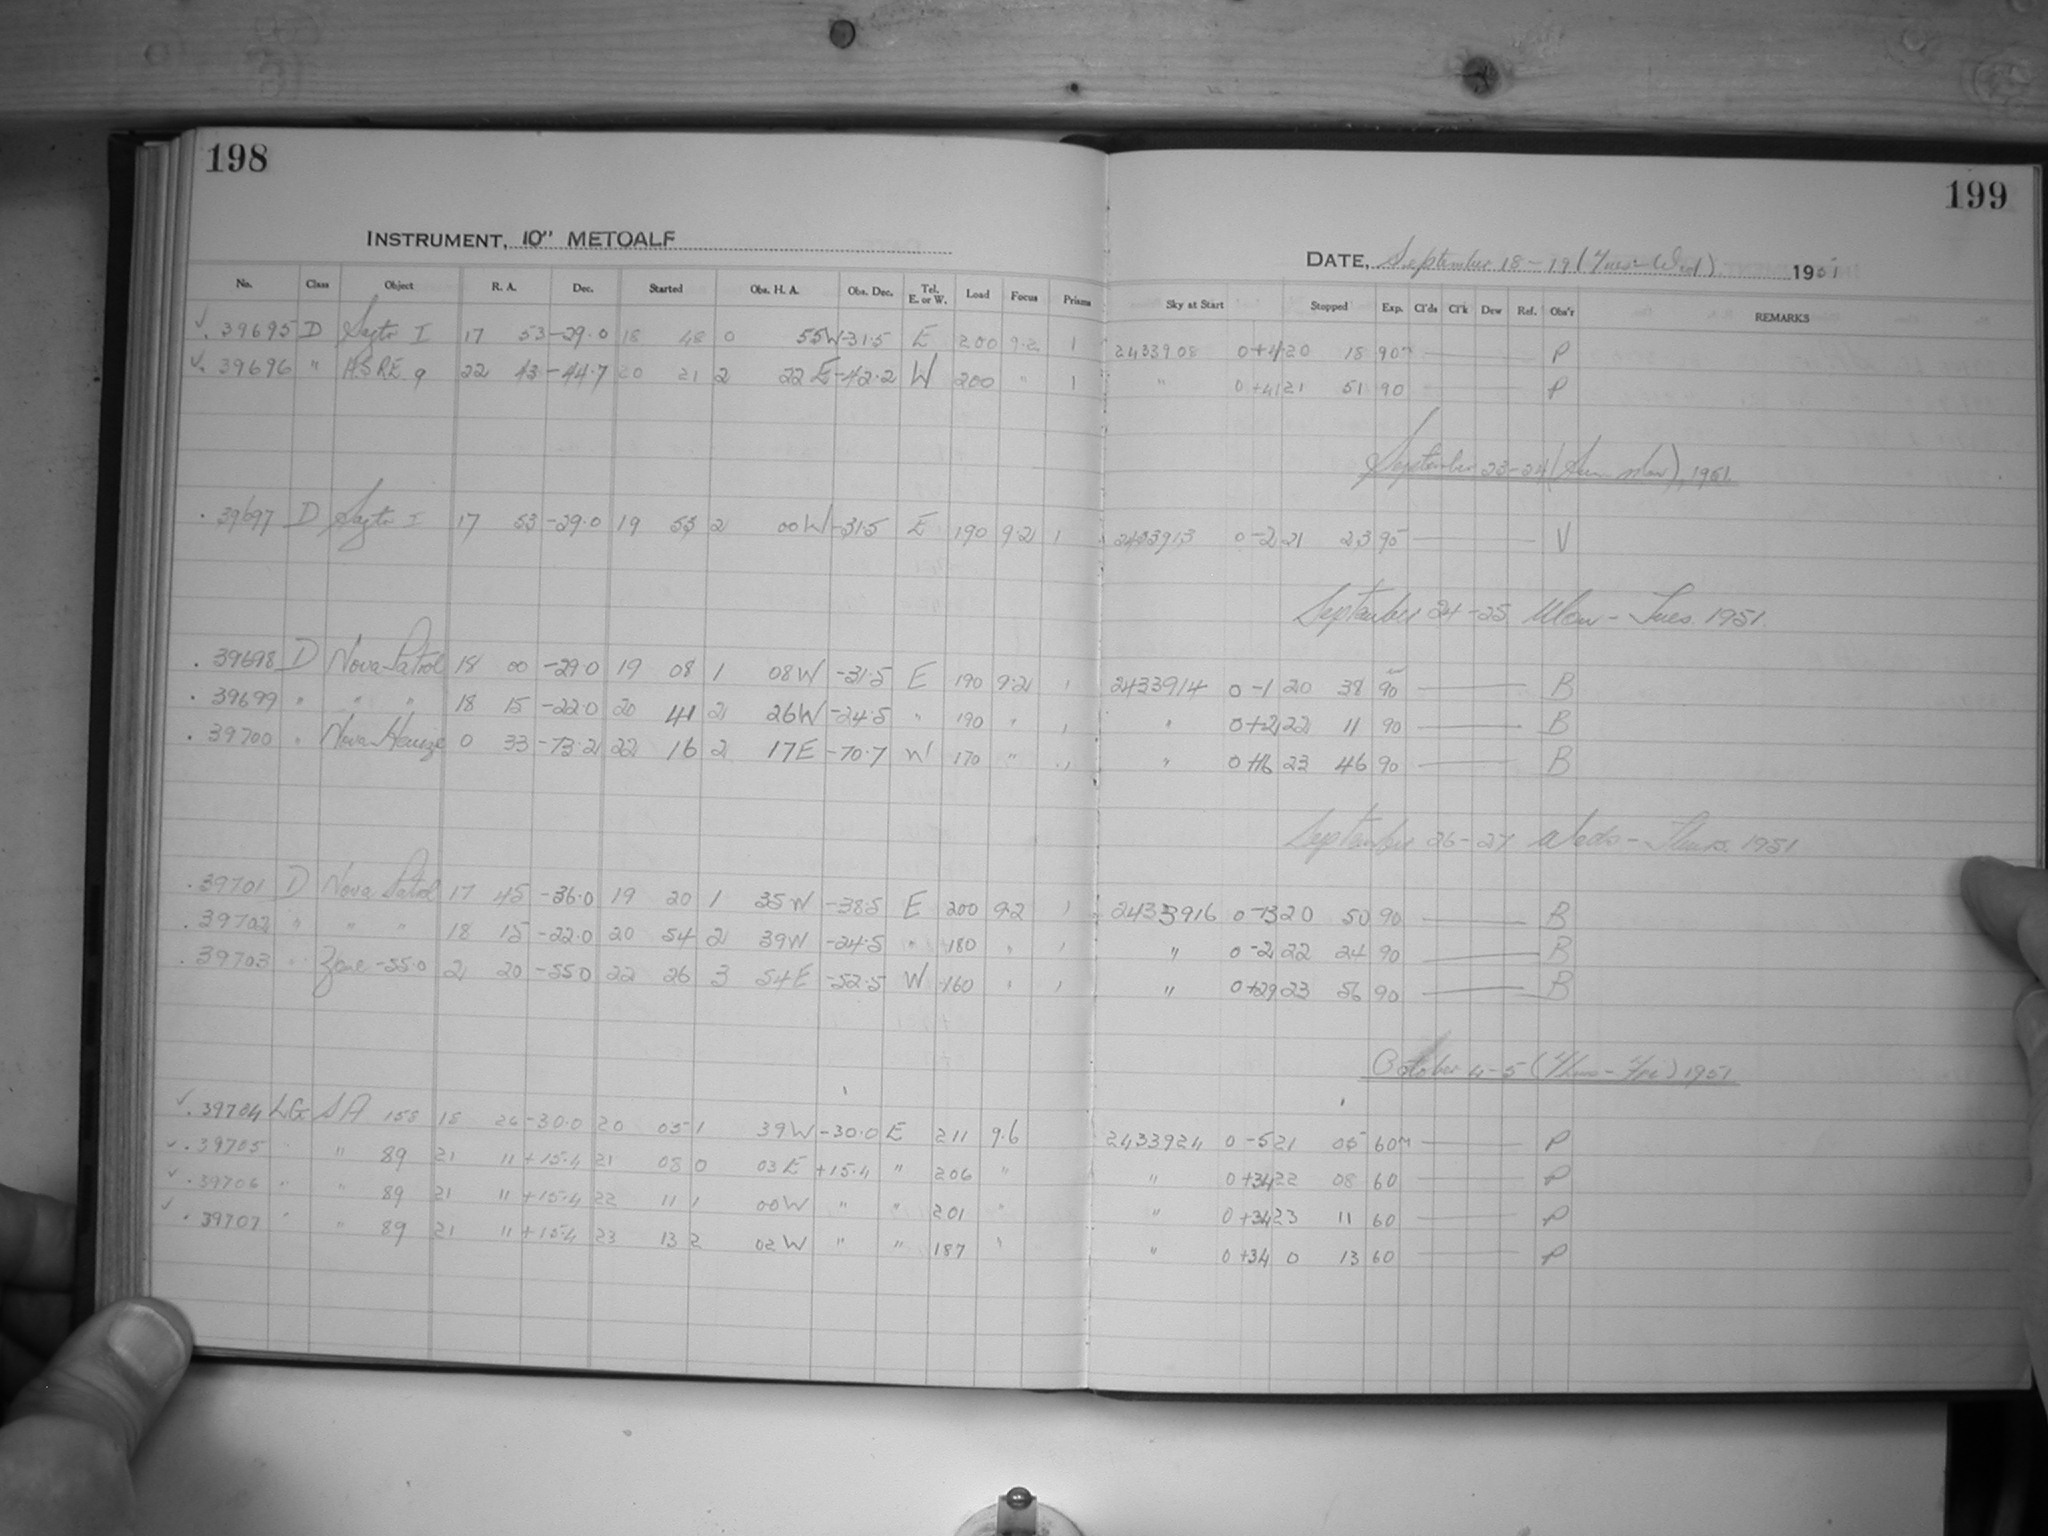 198
199
INSTRUMENT, 10" METCALF
DATE, September 18-19 (Tues-Wed) 1951
No. Class Object R. A. Dec. Started Obs. H. A. Obs. Dec. Tel. E. or W. Load Focus Prisms Sky at Start Stopped Exp. Cl'ds Cl'k Dew Ref. Obs'r REMARKS
✓. 39695 D Sagtr I 17 53 -29.0 18 48 0 55W -31.5 E 200 9.2 1 2433908 0 +4 20 18 90m P
✓. 39696 " 22 43 -44.7 20 21 2 22 E -42.2 W 200 " 1 " 0 +4 21 51 90 P
September 23-24 (Sun-Mon), 1951
. 39697 D Sagtr I 17 53 -29.0 19 53 2 00W -31.5 E 190 9.2 1 2433913 0 -2 21 23 90 V
September 24-25 Mon - Tues. 1951.
. 39698 D Nova Patrol 18 00 -29.0 19 08 1 08W -31.5 E 190 9.2 1 2433914 0 -1 20 38 90 B
. 39699 " " " 18 15 -22.0 20 41 2 26W -24.5 " 190 " 1 " 0 +2 22 11 90 B
. 39700 " Nova Henize 0 33 -73.2 22 16 2 17E -70.7 W 170 " 1 " 0 +16 23 46 90 B
September 26-27 Weds - Thurs. 1951
. 39701 D Nova Patrol 17 45 -36.0 19 20 1 35W -38.5 E 200 9.2 1 2433916 0 -13 20 50 90 B
. 39702 " " " 18 15 -22.0 20 54 2 39W -24.5 " 180 " 1 " 0 -2 22 24 90 B
. 39703 " Zone -55.0 2 20 -55.0 22 26 3 54E -52.5 W 160 " 1 " 0 +29 23 56 90 B
October 4-5 (Thurs-Fri) 1951
✓. 39704 LG SA 158 18 26 -30.0 20 05 1 39W -30.0 E 211 9.6 2433924 0 -5 21 05 60m P
✓. 39705 " " 89 21 11 +15.4 21 08 0 03E +15.4 " 206 " " 0 +34 22 08 60 P
✓. 39706 " " 89 21 11 +15.4 22 11 1 00W " " 201 " " 0 +34 23 11 60 P
✓. 39707 " " 89 21 11 +15.4 23 13 2 02W " " 187 " " 0 +34 0 13 60 P